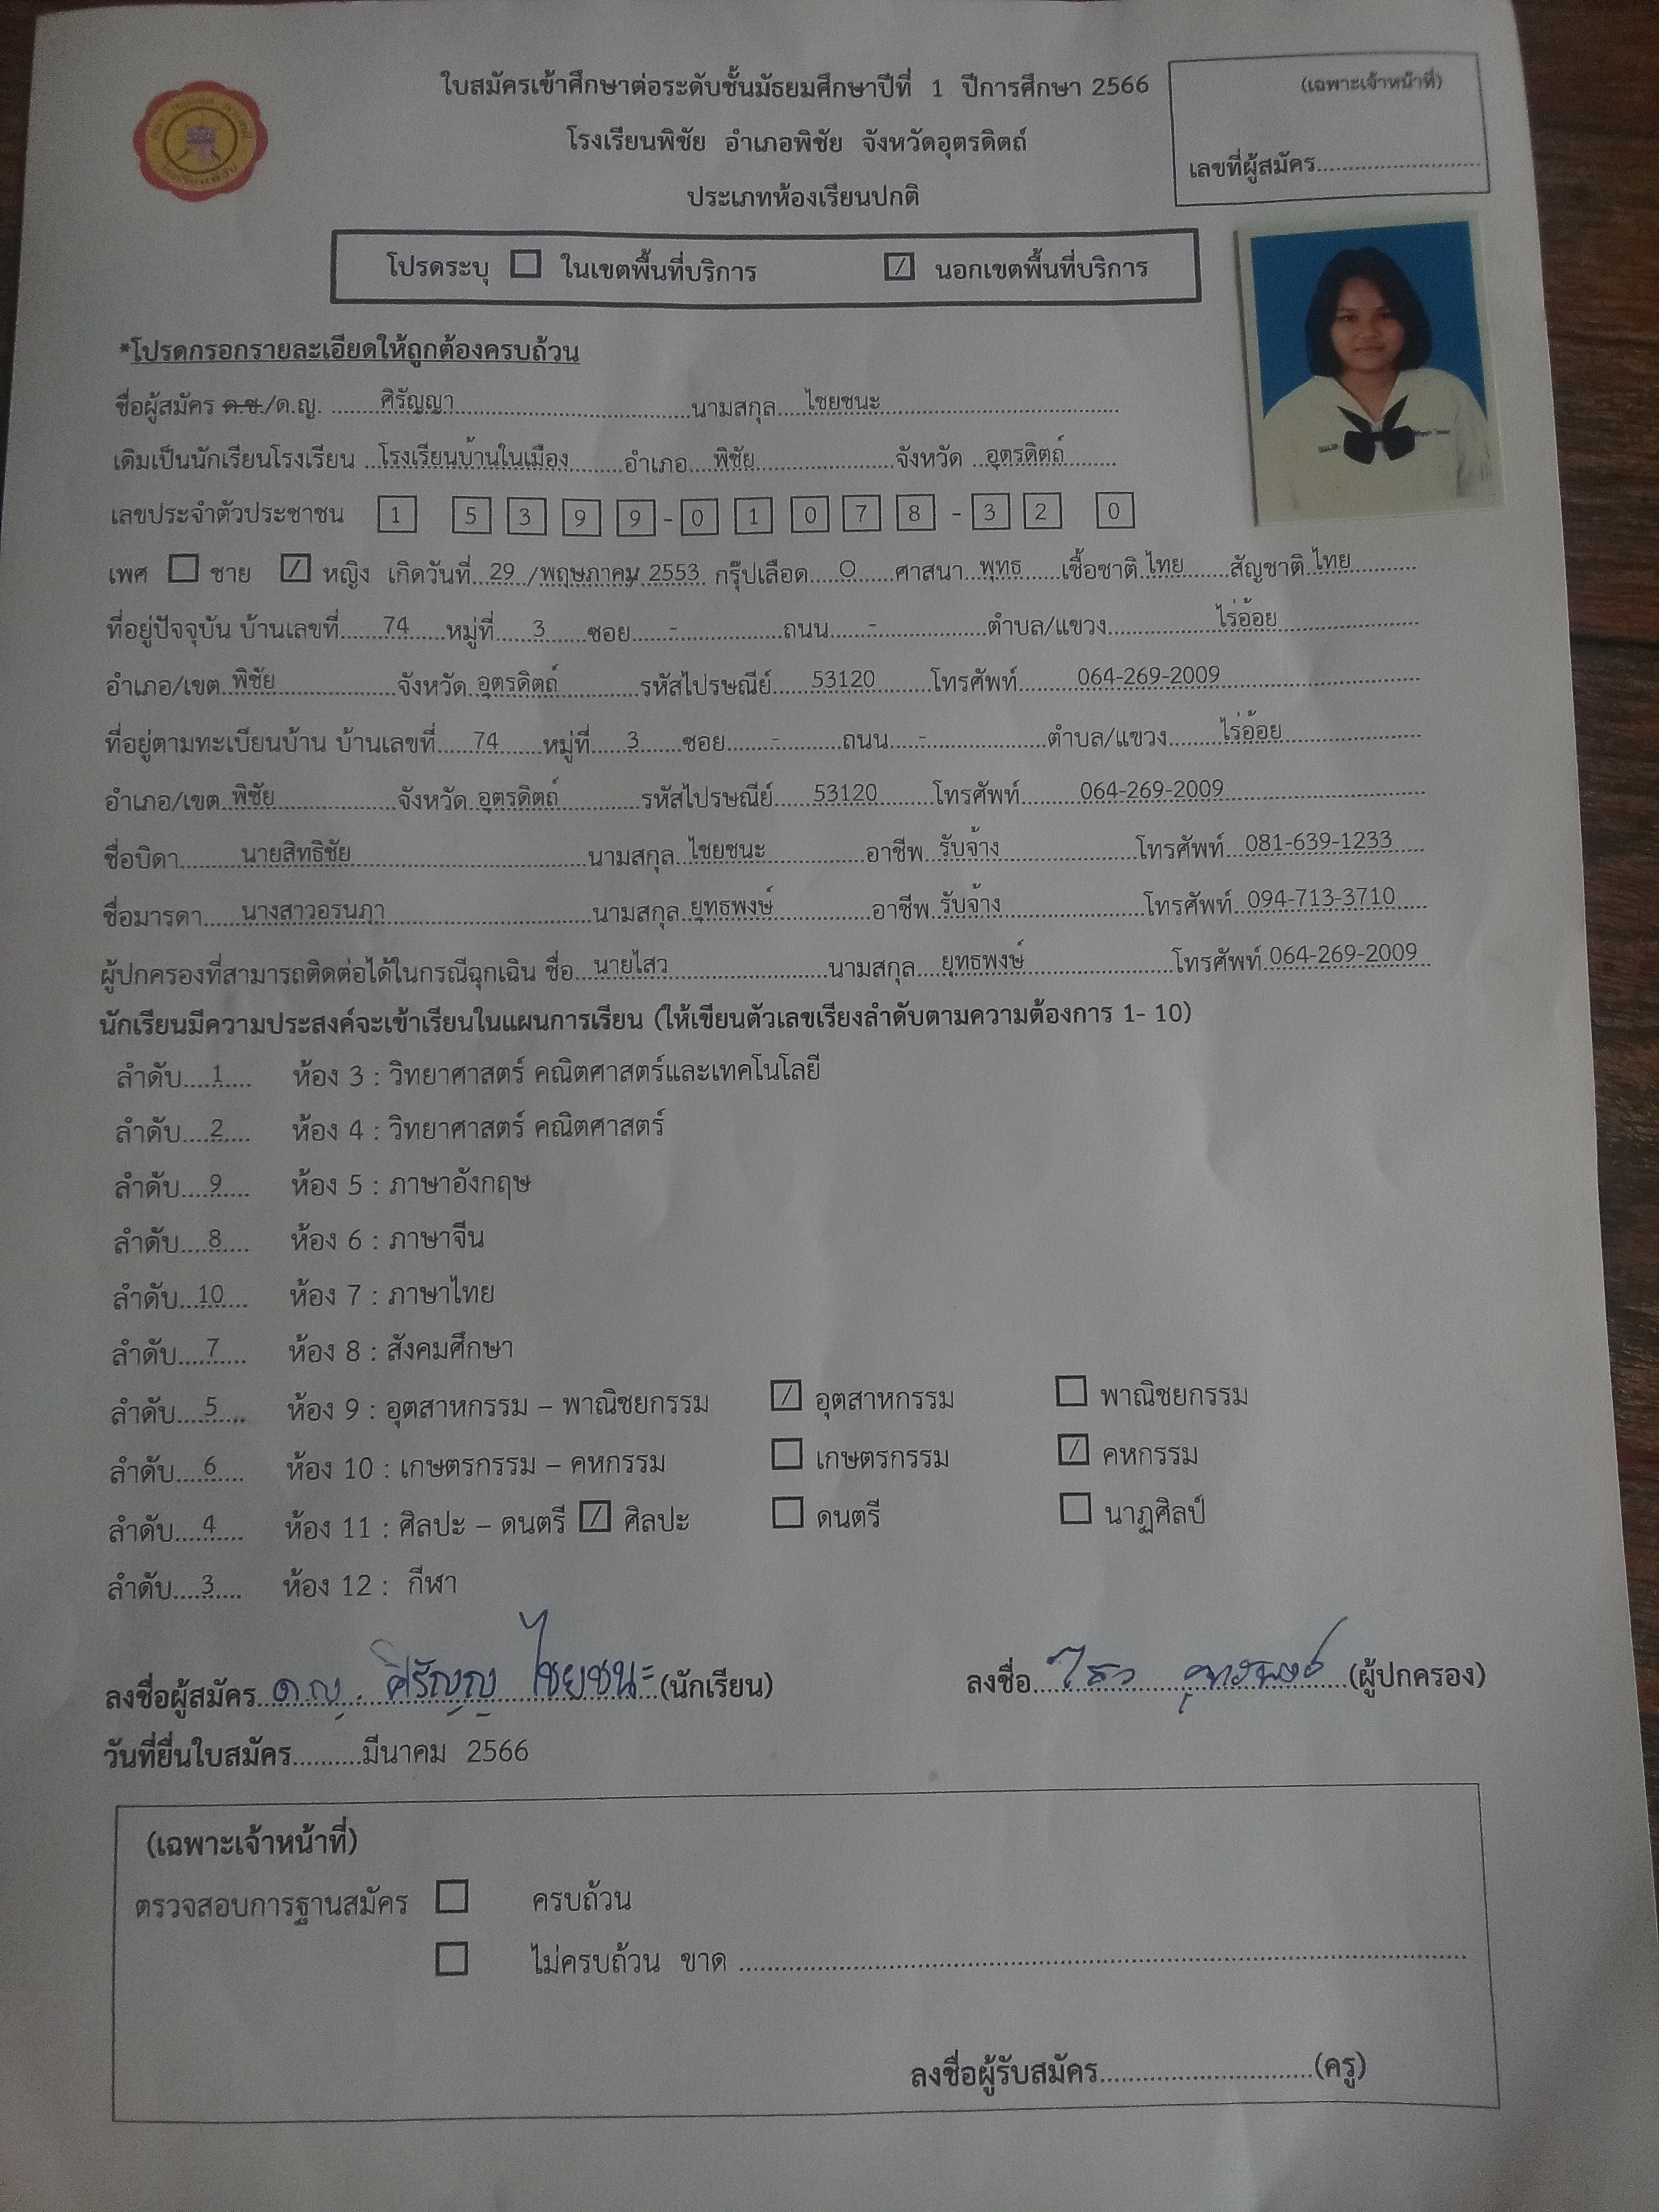 ใบสมัครเข้าศึกษาต่อระดับชั้นมัธยมศึกษาปีที่ 1 ปีการศึกษา 2566
(เฉพาะเจ้าหน้าที่)
โรงเรียนพิชัย อำเภอพิชัย จังหวัดอุตรดิตถ์
เลขที่ผู้สมัคร
ประเภทห้องเรียนปกติ
โปรดระบุ ☐ ในเขตพื้นที่บริการ ☑ นอกเขตพื้นที่บริการ
*โปรดกรอกรายละเอียดให้ถูกต้องครบถ้วน
ชื่อผู้สมัคร ด.ช./ด.ญ. ศิรัญญา นามสกุล ไชยชนะ
เดิมเป็นนักเรียนโรงเรียน โรงเรียนบ้านในเมือง อำเภอ พิชัย จังหวัด อุตรดิตถ์
เลขประจำตัวประชาชน 1 5 3 9 9 - 0 1 0 7 8 - 3 2 0
เพศ ☐ ชาย ☑ หญิง เกิดวันที่ 29 / พฤษภาคม / 2553 กรุ๊ปเลือด O ศาสนา พุทธ เชื้อชาติ ไทย สัญชาติ ไทย
ที่อยู่ปัจจุบัน บ้านเลขที่ 74 หมู่ที่ 3 ซอย - ถนน - ตำบล/แขวง ไร่อ้อย
อำเภอ/เขต พิชัย จังหวัด อุตรดิตถ์ รหัสไปรษณีย์ 53120 โทรศัพท์ 064-269-2009
ที่อยู่ตามทะเบียนบ้าน บ้านเลขที่ 74 หมู่ที่ 3 ซอย - ถนน - ตำบล/แขวง ไร่อ้อย
อำเภอ/เขต พิชัย จังหวัด อุตรดิตถ์ รหัสไปรษณีย์ 53120 โทรศัพท์ 064-269-2009
ชื่อบิดา นายสิทธิชัย นามสกุล ไชยชนะ อาชีพ รับจ้าง โทรศัพท์ 081-639-1233
ชื่อมารดา นางสาวอรนภา นามสกุล ยุทธพงษ์ อาชีพ รับจ้าง โทรศัพท์ 094-713-3710
ผู้ปกครองที่สามารถติดต่อได้ในกรณีฉุกเฉิน ชื่อ นายไสว นามสกุล ยุทธพงษ์ โทรศัพท์ 064-269-2009
นักเรียนมีความประสงค์จะเข้าเรียนในแผนการเรียน (ให้เขียนตัวเลขเรียงลำดับตามความต้องการ 1- 10)
ลำดับ 1 ห้อง 3 : วิทยาศาสตร์ คณิตศาสตร์และเทคโนโลยี
ลำดับ 2 ห้อง 4 : วิทยาศาสตร์ คณิตศาสตร์
ลำดับ 9 ห้อง 5 : ภาษาอังกฤษ
ลำดับ 8 ห้อง 6 : ภาษาจีน
ลำดับ 10 ห้อง 7 : ภาษาไทย
ลำดับ 7 ห้อง 8 : สังคมศึกษา
ลำดับ 5 ห้อง 9 : อุตสาหกรรม – พาณิชยกรรม ☑ อุตสาหกรรม ☐ พาณิชยกรรม
ลำดับ 6 ห้อง 10 : เกษตรกรรม – คหกรรม ☐ เกษตรกรรม ☑ คหกรรม
ลำดับ 4 ห้อง 11 : ศิลปะ – ดนตรี ☑ ศิลปะ ☐ ดนตรี ☐ นาฏศิลป์
ลำดับ 3 ห้อง 12 : กีฬา
ลงชื่อผู้สมัคร ด.ญ. ศิรัญญา ไชยชนะ (นักเรียน) ลงชื่อ ไสว ยุทธพงษ์ (ผู้ปกครอง)
วันที่ยื่นใบสมัคร มีนาคม 2566
(เฉพาะเจ้าหน้าที่)
ตรวจสอบการฐานสมัคร ☐ ครบถ้วน
☐ ไม่ครบถ้วน ขาด
ลงชื่อผู้รับสมัคร (ครู)